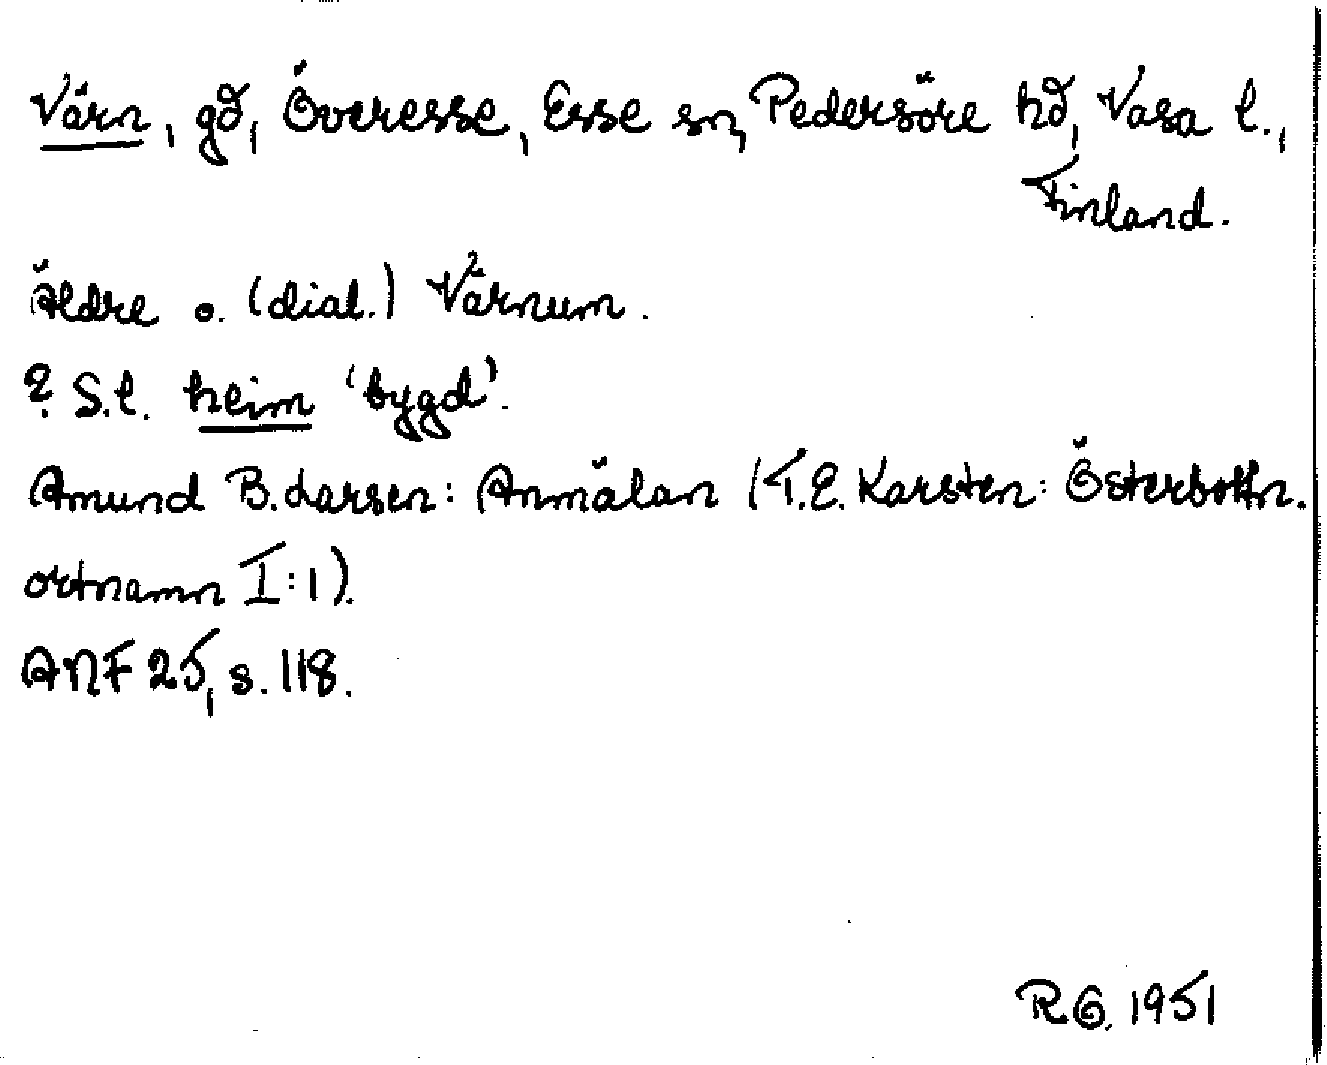 Värn, gd, Överesse, Esse sn, Pedersöre hd, Vasa l.,
Finland.
Äldre o. (dial.) Värnum.
? S.l. heim 'bygd'.
Amund B. Larsen: Anmälan (T.E. Karsten: Österbottn.
ortnamn I:1).
ANF 25, s. 118.
RG. 1951